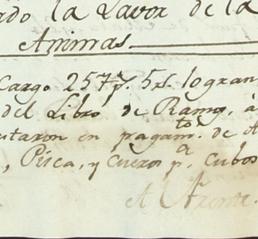 do la Lavor de la
Animas.
Cargo 257 p. 5 rs. lo gran
del Libro de Ramo, á
taron en pagam.to de
, Pisca, y Cueros p.a Cubos